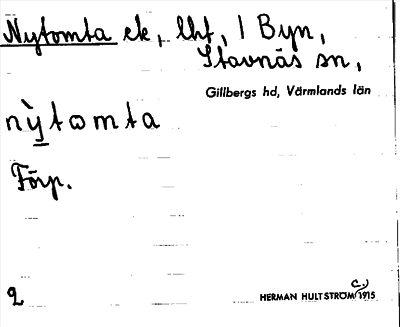 Nytomta ek, lht, 1 Byn,
Stavnäs sn,
Gillbergs hd, Värmlands län
nỳtωmta
Förp.
2
HERMAN HULTSTRÖM (c.) 1915